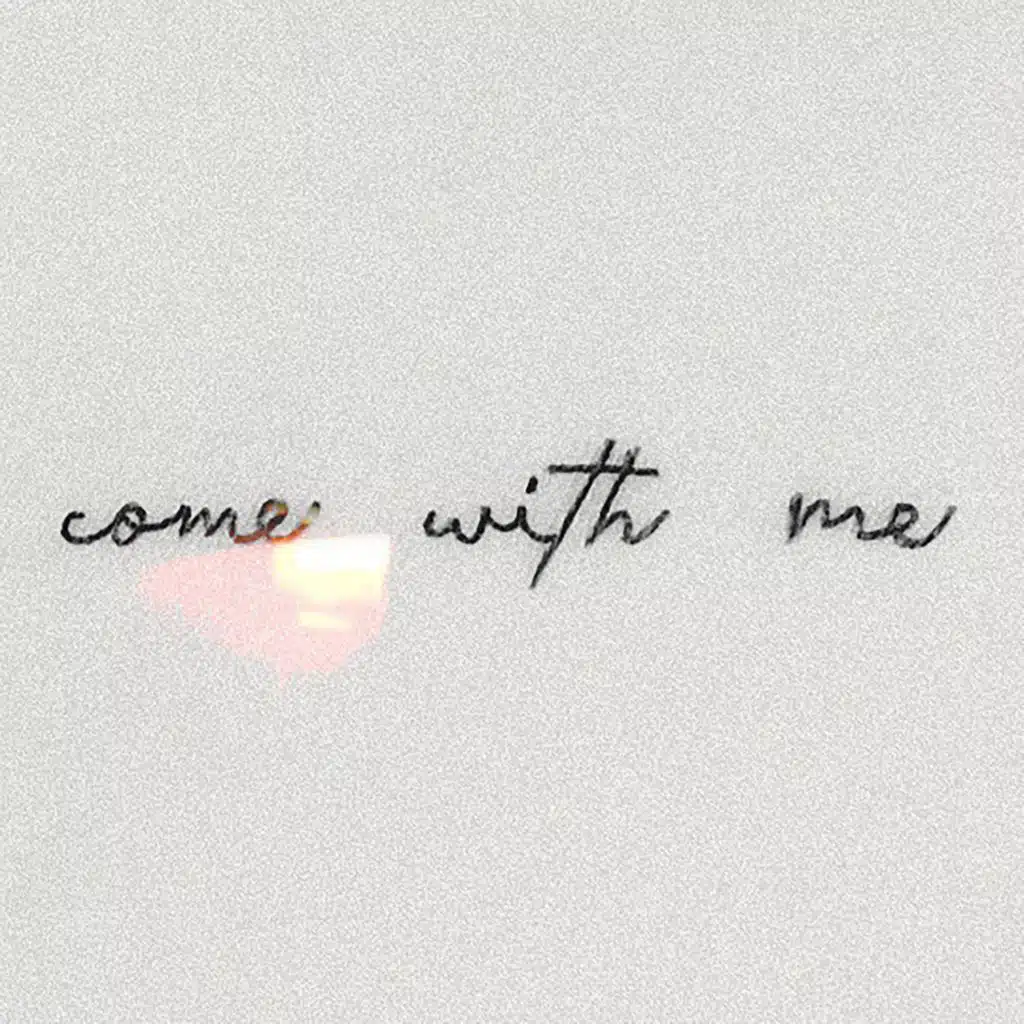 come with me